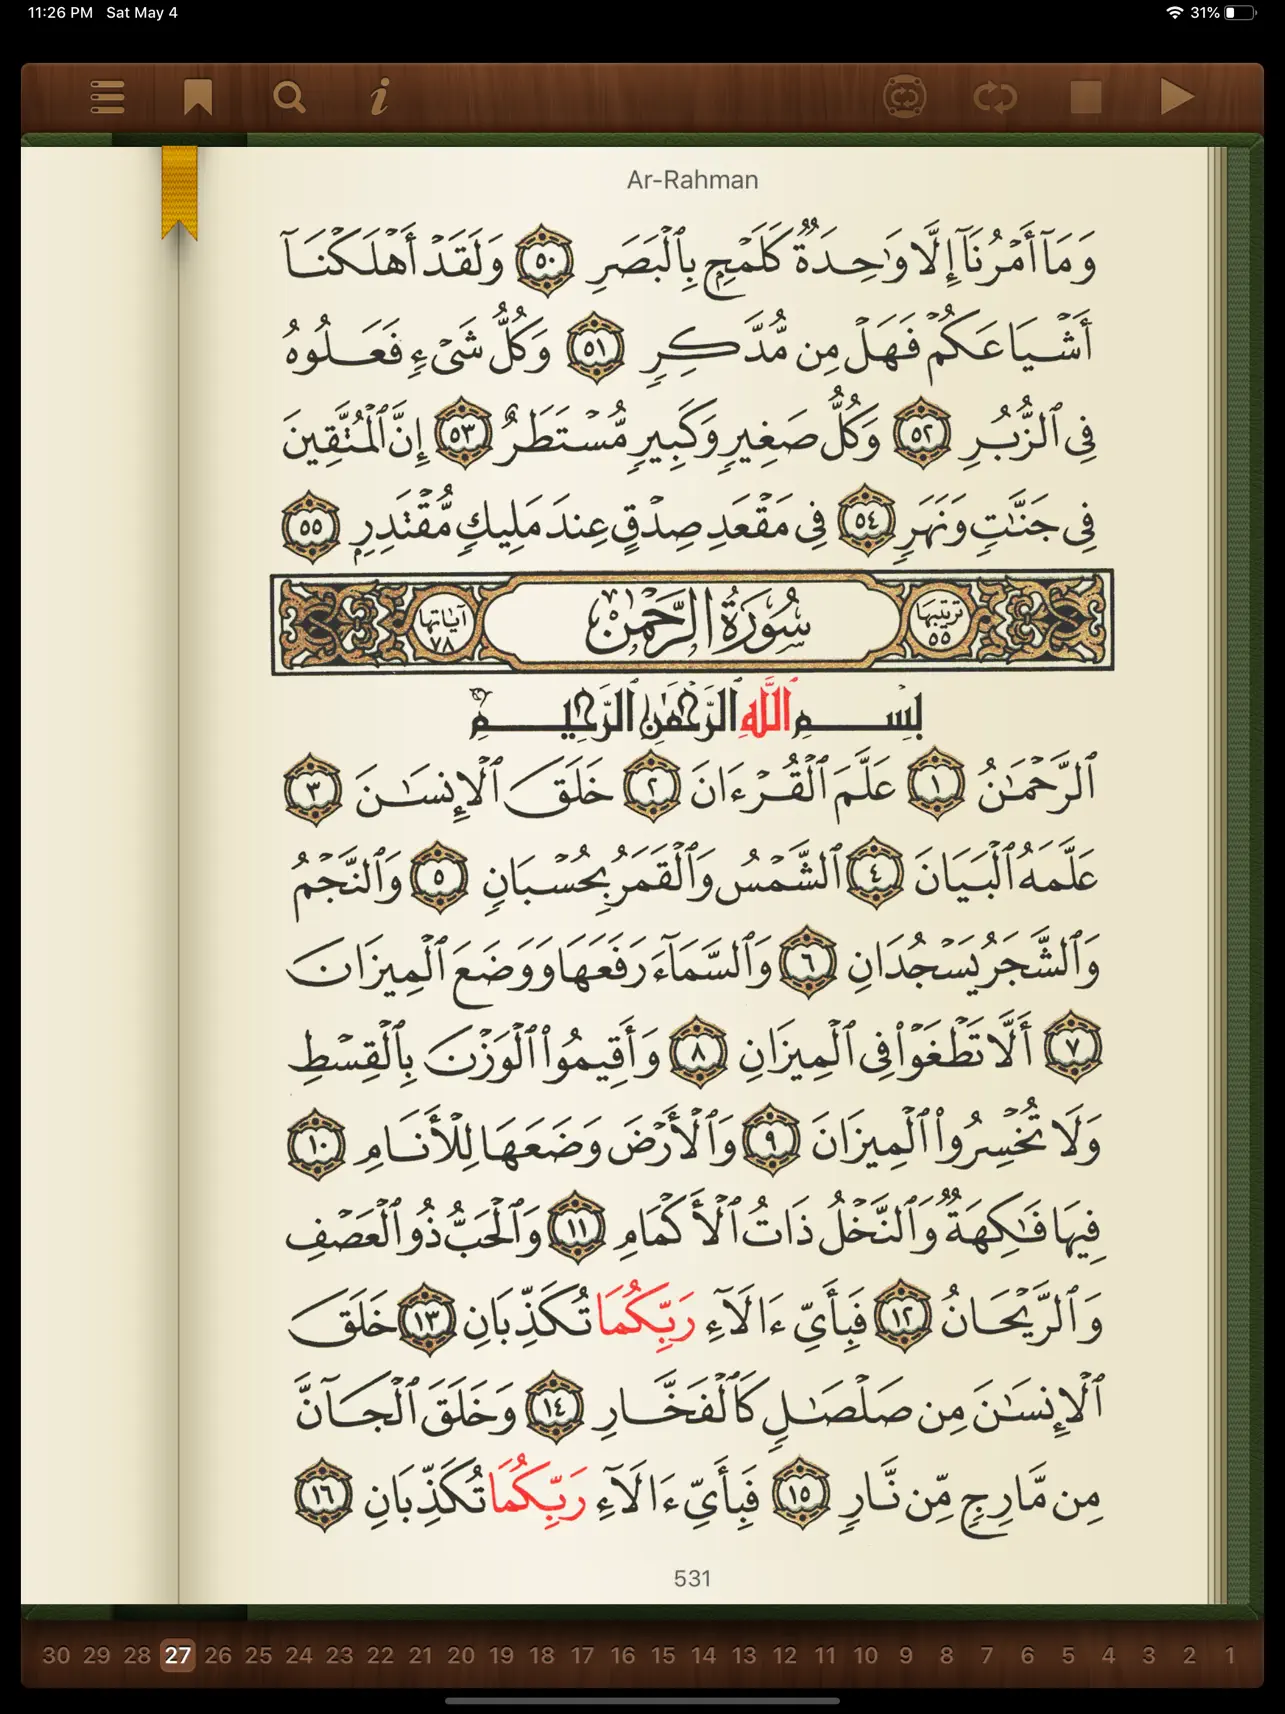 11:26 PM Sat May 4
31%
Ar-Rahman
وَمَآ أَمۡرُنَآ إِلَّا وَٰحِدَةٞ كَلَمۡحِۭ بِٱلۡبَصَرِ ٥٠ وَلَقَدۡ أَهۡلَكۡنَآ
أَشۡيَاعَكُمۡ فَهَلۡ مِن مُّدَّكِرٖ ٥١ وَكُلُّ شَيۡءٖ فَعَلُوهُ
فِي ٱلزُّبُرِ ٥٢ وَكُلُّ صَغِيرٖ وَكَبِيرٖ مُّسۡتَطَرٌ ٥٣ إِنَّ ٱلۡمُتَّقِينَ
فِي جَنَّٰتٖ وَنَهَرٖ ٥٤ فِي مَقۡعَدِ صِدۡقٍ عِندَ مَلِيكٖ مُّقۡتَدِرِۭ ٥٥
ترتيبها ٥٥ سُورَةُ الرَّحۡمَٰن آياتها ٧٨
بِسۡمِ ٱللَّهِ ٱلرَّحۡمَٰنِ ٱلرَّحِيمِ
ٱلرَّحۡمَٰنُ ١ عَلَّمَ ٱلۡقُرۡءَانَ ٢ خَلَقَ ٱلۡإِنسَٰنَ ٣
عَلَّمَهُ ٱلۡبَيَانَ ٤ ٱلشَّمۡسُ وَٱلۡقَمَرُ بِحُسۡبَانٖ ٥ وَٱلنَّجۡمُ
وَٱلشَّجَرُ يَسۡجُدَانِ ٦ وَٱلسَّمَآءَ رَفَعَهَا وَوَضَعَ ٱلۡمِيزَانَ
٧ أَلَّا تَطۡغَوۡاْ فِي ٱلۡمِيزَانِ ٨ وَأَقِيمُواْ ٱلۡوَزۡنَ بِٱلۡقِسۡطِ
وَلَا تُخۡسِرُواْ ٱلۡمِيزَانَ ٩ وَٱلۡأَرۡضَ وَضَعَهَا لِلۡأَنَامِ ١٠
فِيهَا فَٰكِهَةٞ وَٱلنَّخۡلُ ذَاتُ ٱلۡأَكۡمَامِ ١١ وَٱلۡحَبُّ ذُو ٱلۡعَصۡفِ
وَٱلرَّيۡحَانُ ١٢ فَبِأَيِّ ءَالَآءِ رَبِّكُمَا تُكَذِّبَانِ ١٣ خَلَقَ
ٱلۡإِنسَٰنَ مِن صَلۡصَٰلٖ كَٱلۡفَخَّارِ ١٤ وَخَلَقَ ٱلۡجَآنَّ
مِن مَّارِجٖ مِّن نَّارٖ ١٥ فَبِأَيِّ ءَالَآءِ رَبِّكُمَا تُكَذِّبَانِ ١٦
531
30 29 28 27 26 25 24 23 22 21 20 19 18 17 16 15 14 13 12 11 10 9 8 7 6 5 4 3 2 1